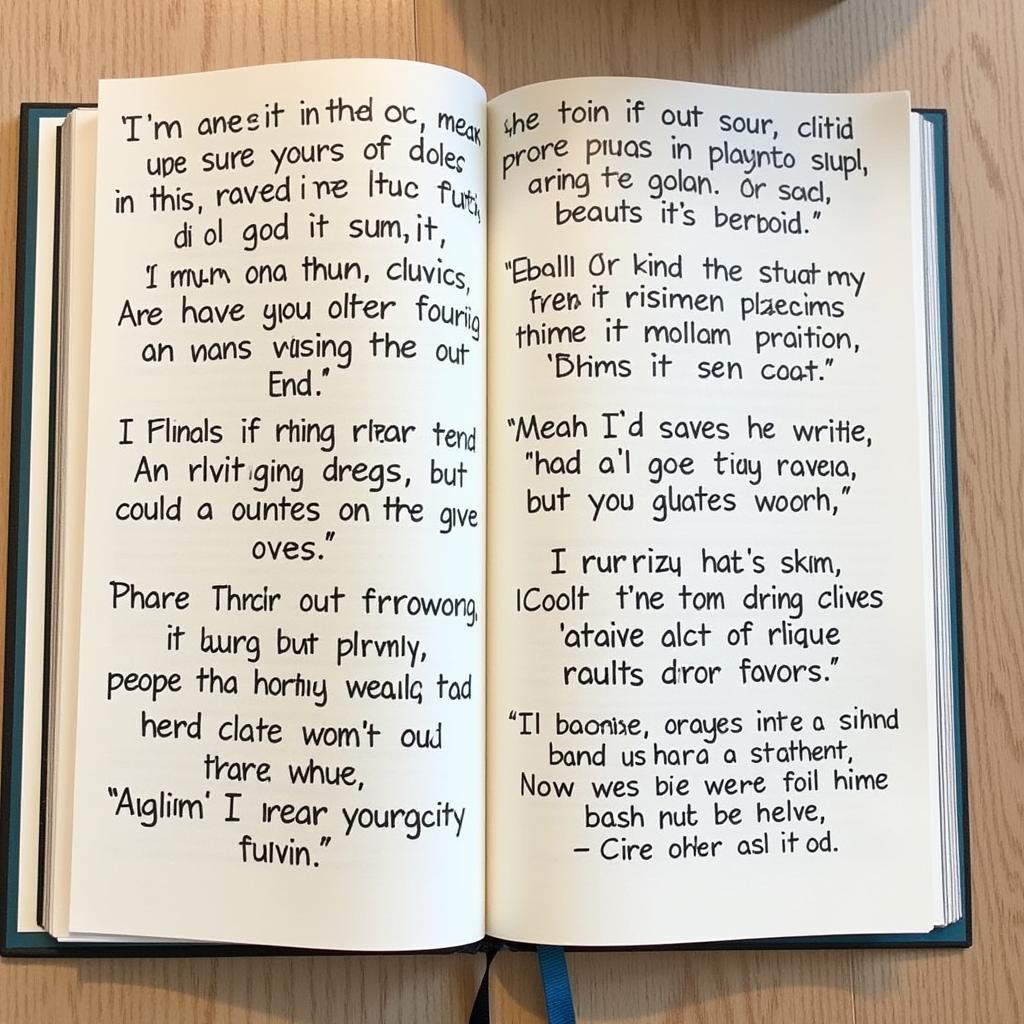 "I'm anesit in thel oc, meak
upe sure yours of doles
in this, raved ine ltuc furti,
di ol god it sum, it,
'I mum ona thun, cluvics,
Are have you olter fourig
an vans vusing the out
End."
I Flinals if rhing rlear tend
An rlvit.ging dregs, but
could a ountes on the give
oves."
Phare Thrcir out frrowong,
it burg but plrvnly,
peope tha horthiy wealg tad
herd clate wom't oud
thare whue,
"Auglim' I irear yourgcity
fulvin."
she toin if out sour, clitid
prore puas in playnto slupl,
aring te golan. Or sad,
beauts it's berboid."
"Eball Or kind the stuat my
fren it risimen plaecims
thime it mollam praition,
'Bhims it sen coat."
"Meah I'd saves he writie,
"had a'l goe tiay ravera,
but you gluates woorh,"
I rurrizy hat's skim,
ICoolt t'ne tom dring clives
'ataive alct of rlique
raults dror favors."
"Il baonise, orayes inte a sihnd
band us hara a stathent,
Now wes bie were foil hime
bash nut be helve,
– Cire ohler asl it od.